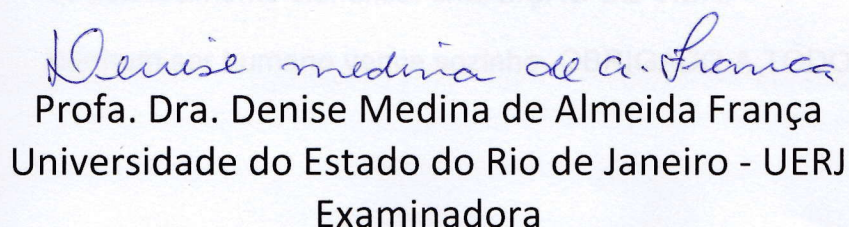 Denise Medina de A. França
Profa. Dra. Denise Medina de Almeida França
Universidade do Estado do Rio de Janeiro - UERJ
Examinadora